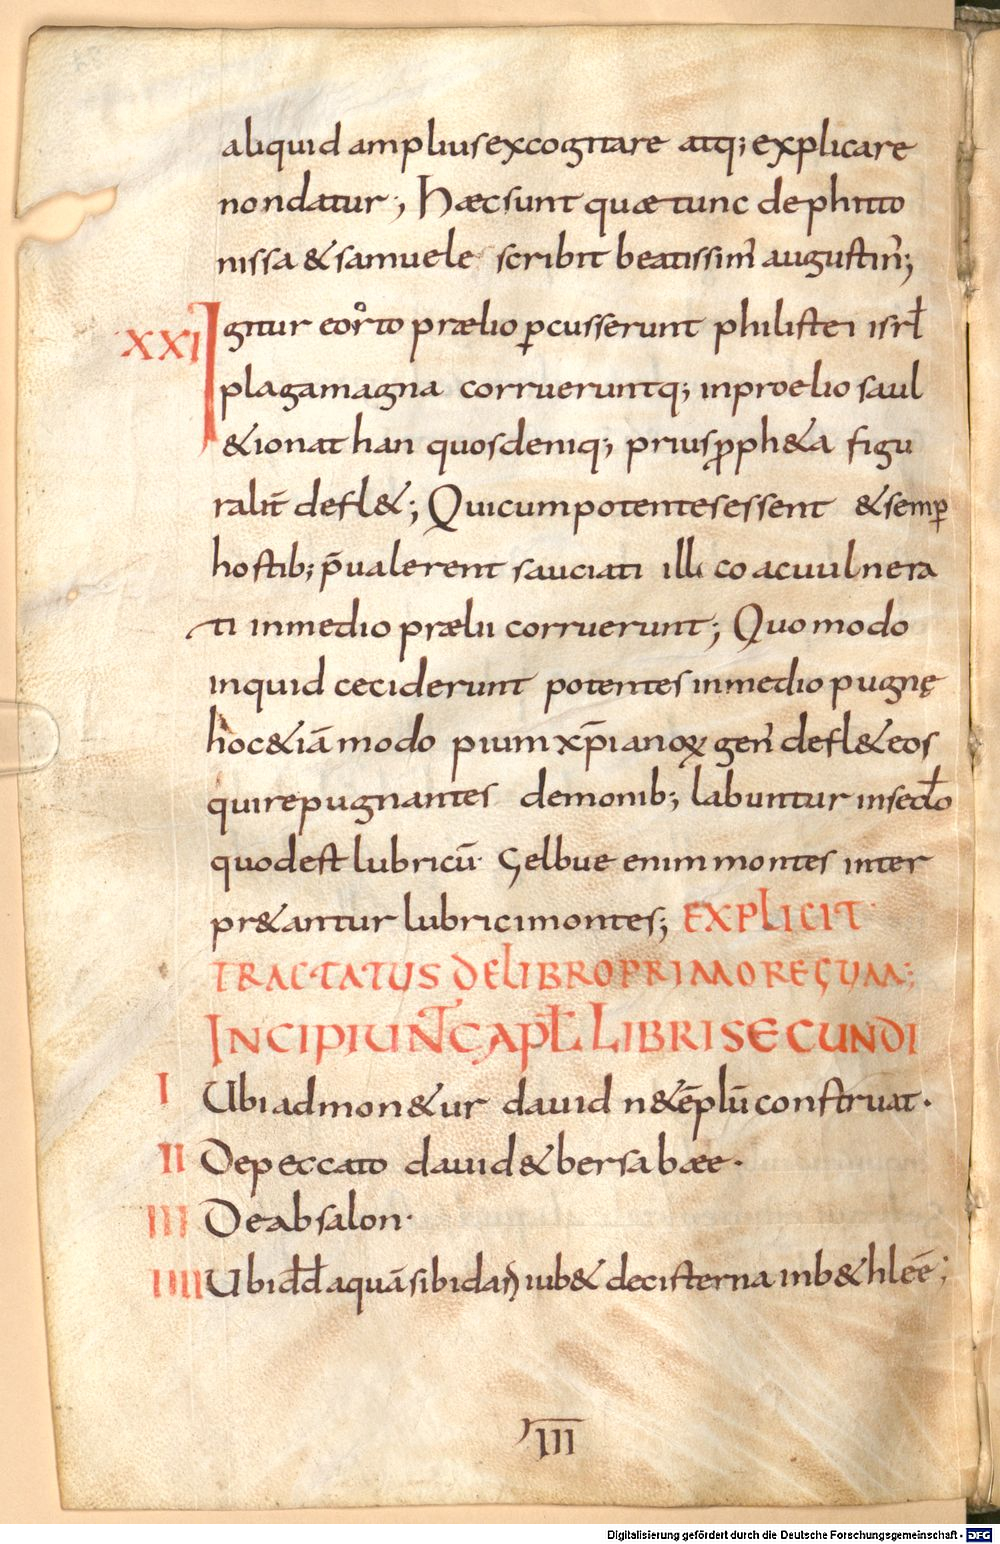 aliquid amplius excogitare atq; explicare
non datur; Haec sunt quae tunc de phitto
nissa & samuele scribit beatissim' augustin';
XXI Igitur coorto praelio ꝑcusserunt philistei isrł
plaga magna corrueruntq; in proelio saul
& ionathan quos deniq; prius ꝓph&a figu
ralit̄ defl&; Qui cum potentes essent & semꝑ
hostib; p̄ualerent sauciati illico ac uulnera
ti in medio praelii corruerunt; Quomodo
inquid ceciderunt potentes in medio pugnę
hoc &iā modo pium xp̄ianoꝝ gen' defl& eos
qui repugnantes demonib; labuntur in secło
quod est lubricū Gelbue enim montes inter
pr&antur lubrici montes; EXPLICIT
TRACTATUS DE LIBRO PRIMO REGUM;
INCIPIUNT CAPŁ LIBRI SECUNDI
I Ubi admon&ur dauid n& ēplū construat.
II De peccato dauid & bersabaee.
III De absalon.
IIII Ubi dd aquā sibi dari iub& de cisterna in b&hleē;
III
Digitalisierung gefördert durch die Deutsche Forschungsgemeinschaft - DFG